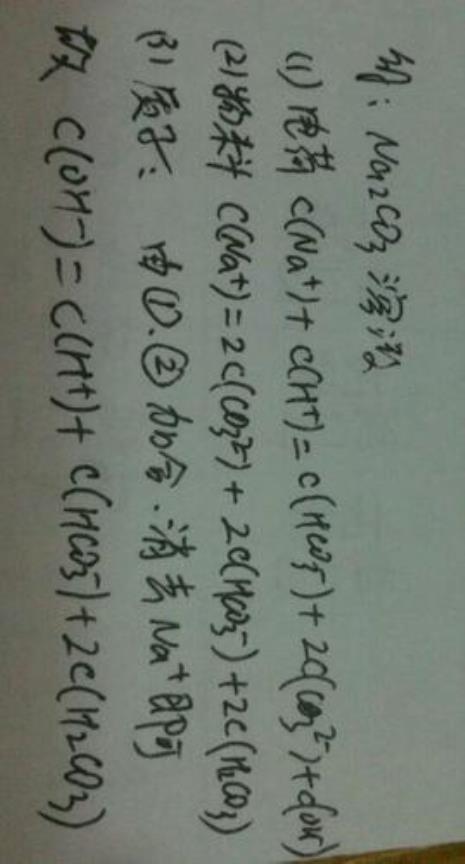 例：Na₂CO₃ 溶液
(1) 电荷 c(Na⁺)+c(H⁺)=c(HCO₃⁻)+2c(CO₃²⁻)+c(OH⁻)
(2) 物料 c(Na⁺)=2c(CO₃²⁻)+2c(HCO₃⁻)+2c(H₂CO₃)
(3) 质子： 由①、② 加合．消去 Na⁺即可
故 c(OH⁻)=c(H⁺)+c(HCO₃⁻)+2c(H₂CO₃)